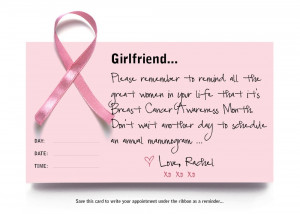 Girlfriend...
Please remember to remind all the
great women in your life that it's
Breast Cancer Awareness Month.
Don't wait another day to schedule
an annual mammogram ...
♡ Love, Rachel
xo xo xo
DAY:
DATE:
TIME:
Save this card to write your appointment under the ribbon as a reminder...